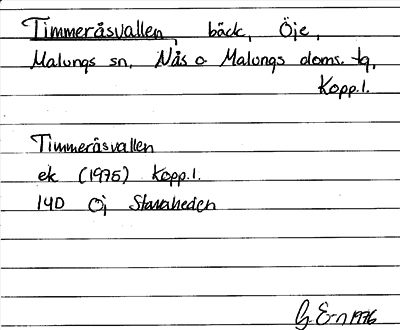 Timmeråsvallen, bäck, Öje,
Malungs sn, Nås o. Malungs doms. tg,
Kopp.l.
Timmeråsvallen
ek (1975) Kopp.l.
14D Öj
G. E-n 1976